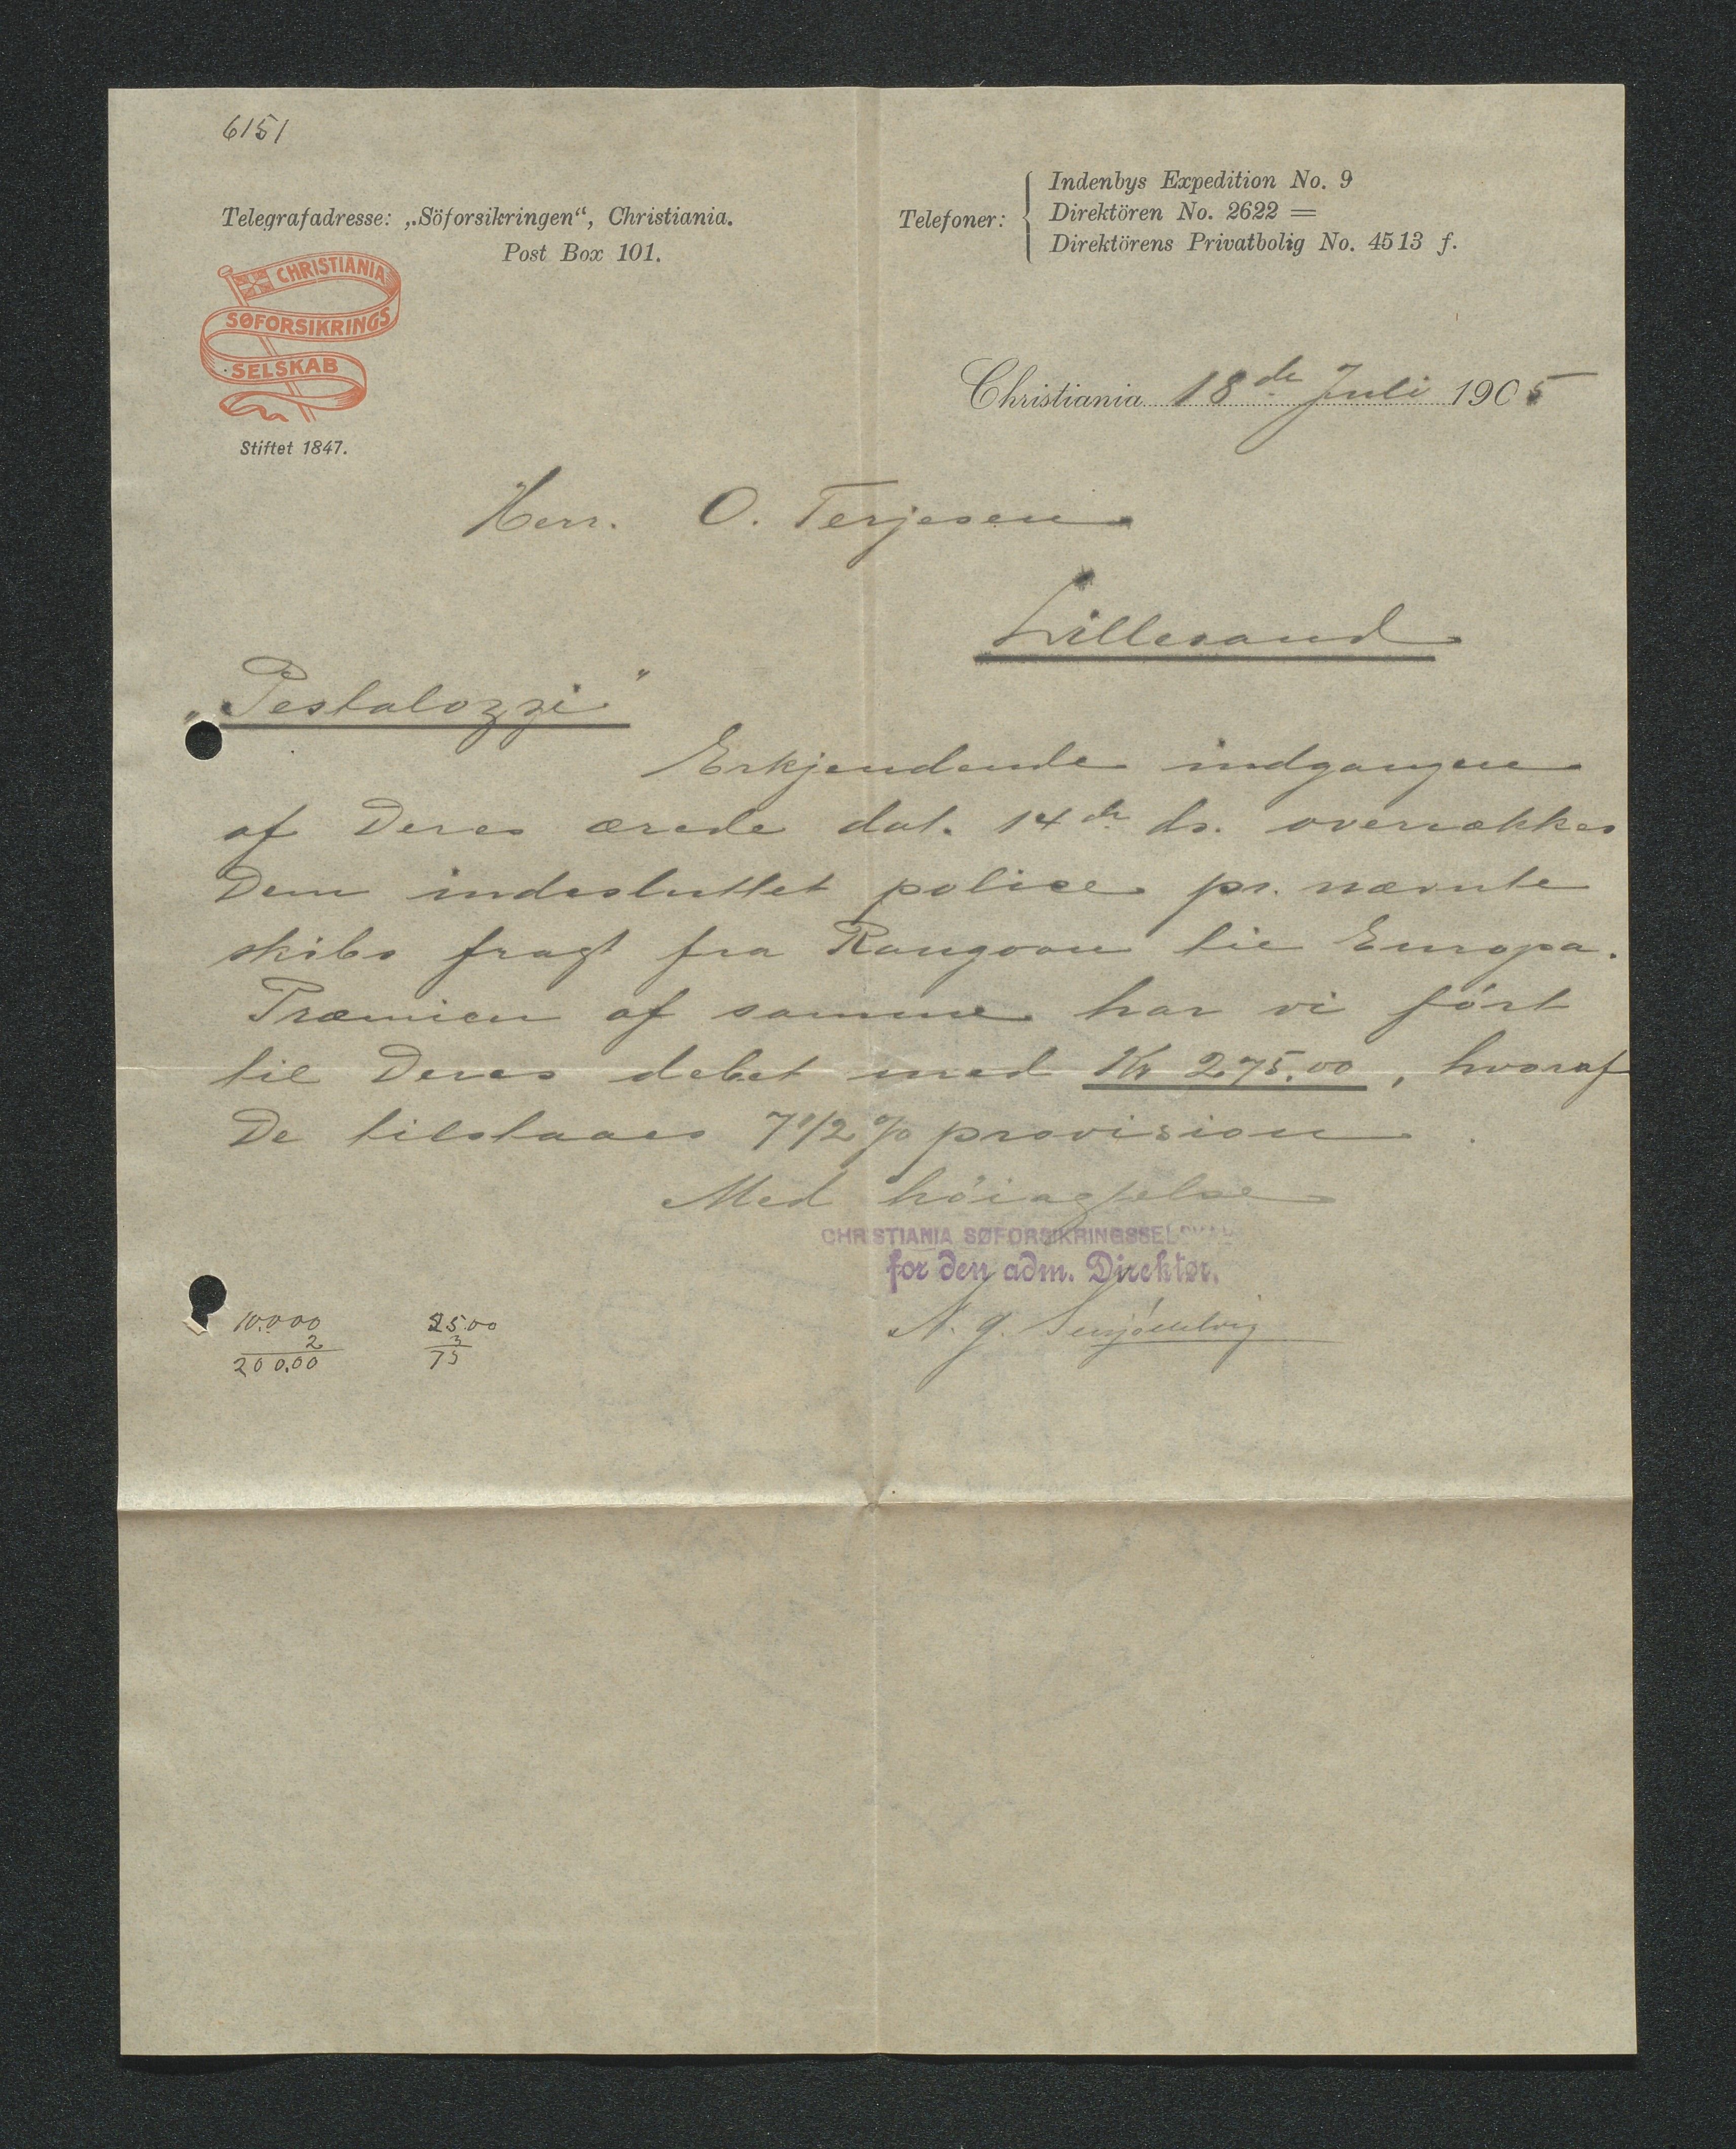 6151
Telegrafadresse: „Söforsikringen“, Christiania.
Post Box 101.
Telefoner:
Indenbys Expedition No. 9
Direktören No. 2622 =
Direktörens Privatbolig No. 4513 f.
CHRISTIANIA
SØFORSIKRINGS
SELSKAB
Stiftet 1847.
Christiania 18de Juli 1905
Herr. O. Terjesen
Lillesand
„Pestalozzi"
Erkjendende indgangen
af Deres ærede dat. 14de ds. overrækkes
Dem indesluttet police pr. nævnte
skibs fragt fra Rangoon til Europa.
Præmien af samme har vi fört
til Deres debet med Kr 275.00, hvoraf
De tilstaaes 7 1/2 % provision.
Med höiagtelse
CHRISTIANIA SØFORSIKRINGSSELSKAB
for den adm. Direktør.
10.000
2
200.00
25.00
3
75